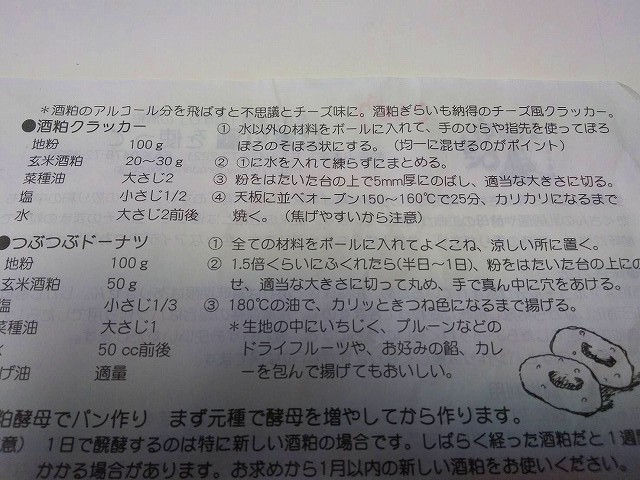 ＊酒粕のアルコール分を飛ばすと不思議とチーズ味に。酒粕ぎらいも納得のチーズ風クラッカー。
●酒粕クラッカー
地粉 100g
玄米酒粕 20～30g
菜種油 大さじ2
塩 小さじ1/2
水 大さじ2前後
① 水以外の材料をボールに入れて、手のひらや指先を使ってぽろ
ぽろのそぼろ状にする。（均一に混ぜるのがポイント）
② ①に水を入れて練らずにまとめる。
③ 粉をはたいた台の上で5mm厚にのばし、適当な大きさに切る。
④ 天板に並べオーブン150～160℃で25分、カリカリになるまで
焼く。（焦げやすいから注意）
●つぶつぶドーナツ
地粉 100g
玄米酒粕 50g
塩 小さじ1/3
菜種油 大さじ1
50cc前後
げ油 適量
① 全ての材料をボールに入れてよくこね、涼しい所に置く。
② 1.5倍くらいにふくれたら(半日～1日)、粉をはたいた台の上にの
せ、適当な大きさに切って丸め、手で真ん中に穴をあける。
③ 180℃の油で、カリッときつね色になるまで揚げる。
＊生地の中にいちじく、プルーンなどの
ドライフルーツや、お好みの餡、カレ
ーを包んで揚げてもおいしい。
粕酵母でパン作り まず元種で酵母を増やしてから作ります。
意） 1日で醗酵するのは特に新しい酒粕の場合です。しばらく経った酒粕だと1週
かかる場合があります。お求めから1月以内の新しい酒粕をお使いください。